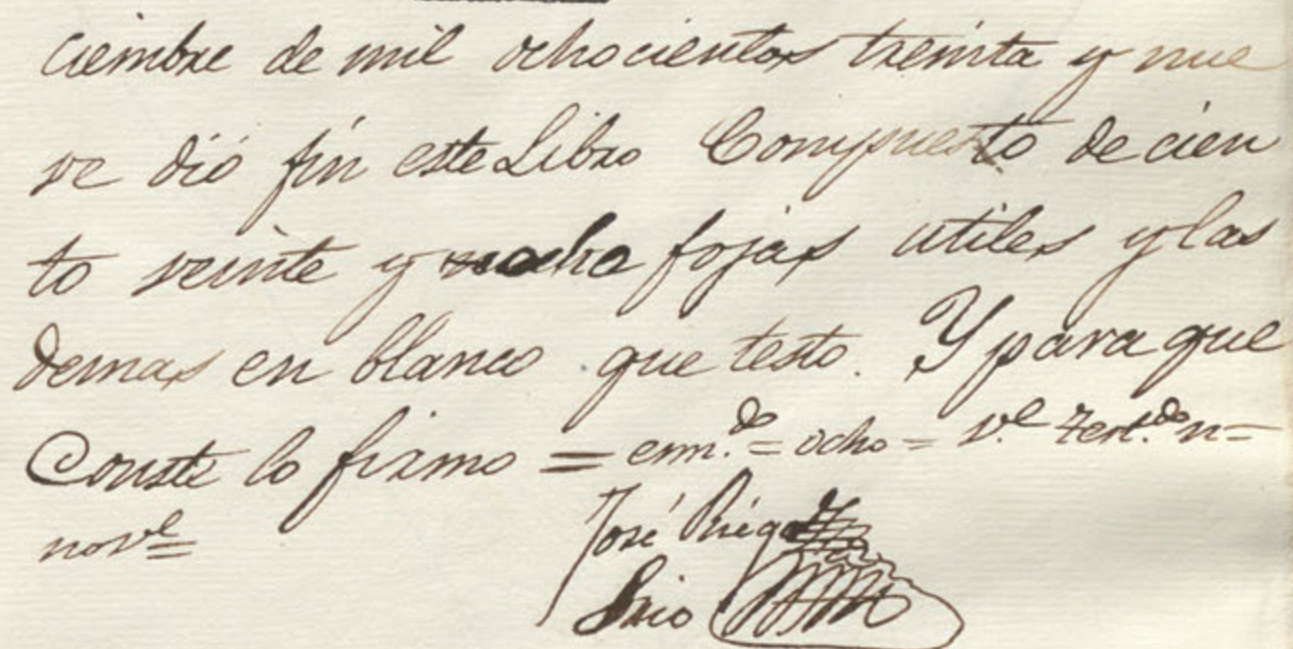 ciembre de mil ochocientos treinta y nue
ve dió fin este Libro Compuesto de cien
to veinte y ocho fojas utiles y las
demas en blanco que testo. Y para que
Conste lo firmo = enm.do = ocho = v.e Test.do n =
no v.e =
José Puiga
Srio